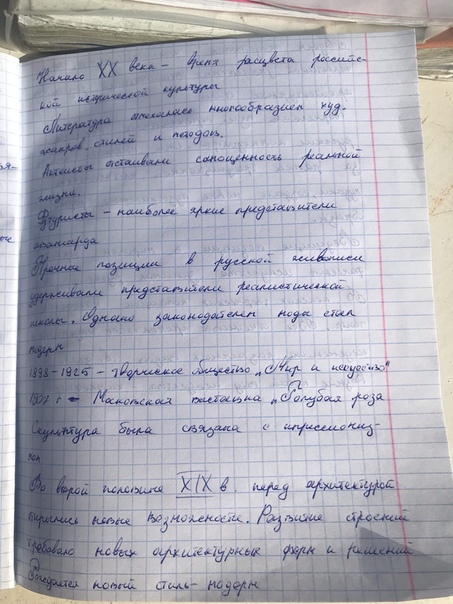 Начало XX века - время расцвета россійс-
кой исторической культуры
Литература отличалась многообразием худ.
жанров, стилей и методов.
Акмеисты отстаивали самоценность реальной
жизни.
Футуристы - наиболее яркие представители
авангарда
Прочные позиции в русской живописи
удерживали представители реалистической
школы. Однако законодателем моды стал
модерн
1898-1925 - Творческое общество "Мир и искуство"
1907 г - Московская выставка "Голубая роза
Скульптура была связана с импрессиониз-
мом
Во второй половине XIX в. перед архитектурой
открылись новые возможности. Развитие строений
требовало новых архитектурных форм и решений
новый стиль - модерн